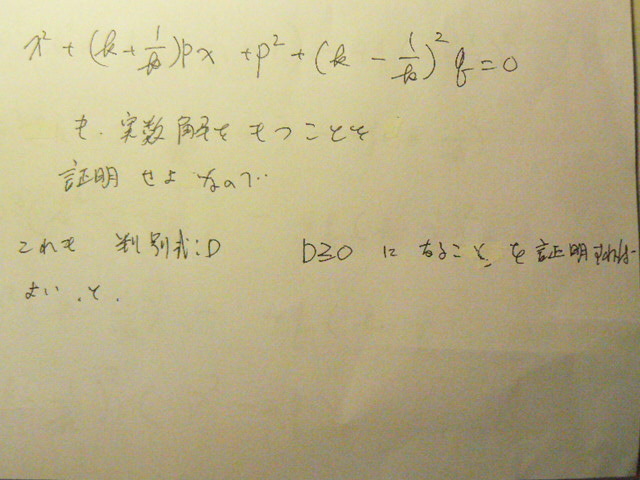 x² + (k + 1/k)px + p² + (k - 1/k)² q = 0
も、実数解をもつことを
証明せよ なので…
これも 判別式:D D≧0 になること、を証明すれば
よい、と、